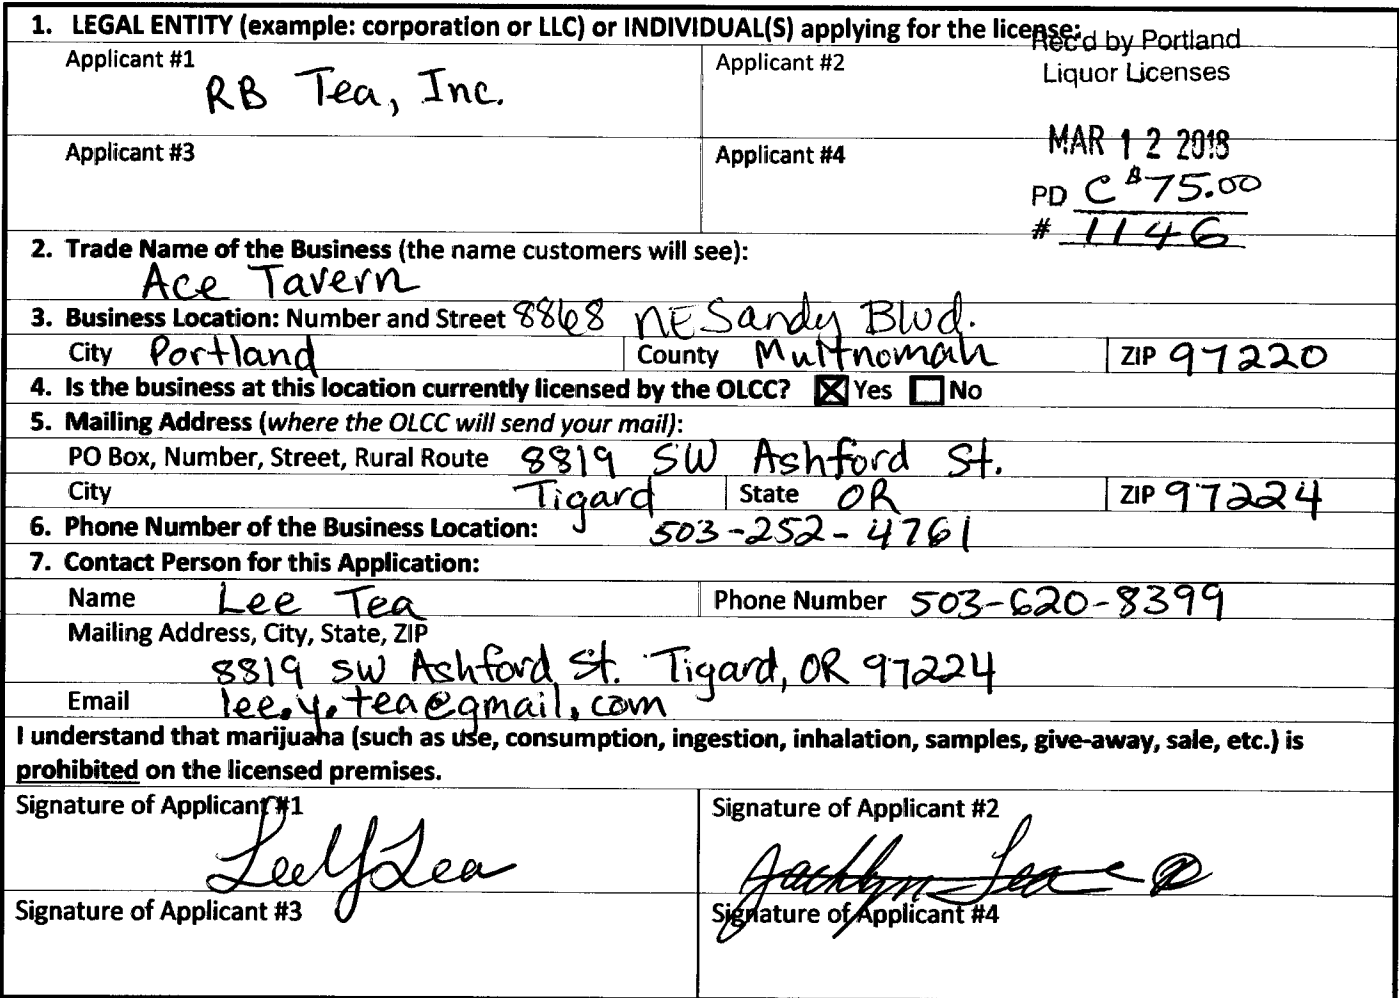 1. LEGAL ENTITY (example: corporation or LLC) or INDIVIDUAL(S) applying for the license:
Rec'd by Portland
Liquor Licenses
Applicant #1
RB Tea, Inc.
Applicant #2
MAR 12 2018
Applicant #3
Applicant #4
PD C $75.00
# 1146
2. Trade Name of the Business (the name customers will see):
Ace Tavern
3. Business Location: Number and Street 8868 NE Sandy Blvd.
City Portland County Multnomah ZIP 97220
4. Is the business at this location currently licensed by the OLCC? ☒ Yes ☐ No
5. Mailing Address (where the OLCC will send your mail):
PO Box, Number, Street, Rural Route 8819 SW Ashford St.
City Tigard State OR ZIP 97224
6. Phone Number of the Business Location: 503-252-4761
7. Contact Person for this Application:
Name Lee Tea Phone Number 503-620-8399
Mailing Address, City, State, ZIP
8819 SW Ashford St. Tigard, OR 97224
Email lee.y.tea@gmail.com
I understand that marijuana (such as use, consumption, ingestion, inhalation, samples, give-away, sale, etc.) is
prohibited on the licensed premises.
Signature of Applicant #1
Lee Y Tea
Signature of Applicant #2
Jacklyn Tea
Signature of Applicant #3
Signature of Applicant #4